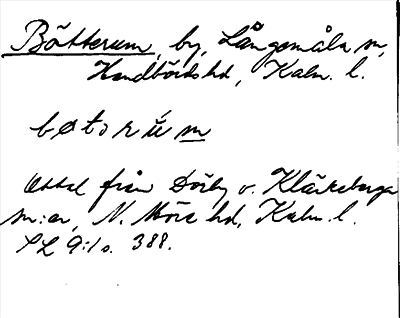 Bötterum, by, Långemåla sn,
Handbörds hd, Kalm. l.
bøtorŭm
Uttal från Döderhult o. Kläckeberga
sn:ar, N. Möre hd, Kalm. l.
SL 9:1 s. 388.